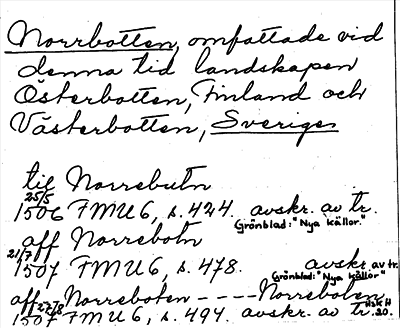 Norrbotten, omfattade vid
denna tid landskapen
Österbotten, Finland och
Västerbotten, Sverige.
til Norrebutn
25/5
1506 FMU 6, s. 424. avskr. av tr.
Grönblad: "Nya källor."
aff Norrebotn
21/7
1507 FMU 6, s. 478. avskr. av tr.
Grönblad: "Nya källor"
aff Norreboten - - - - Norreboten
27/8
1507 FMU 6, s. 494. avskr. av tr. HSH 20.